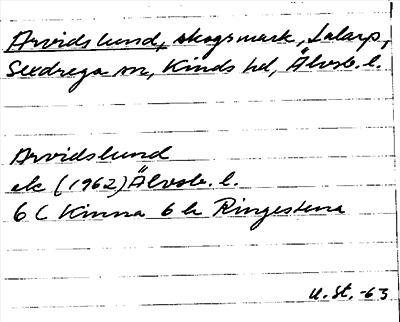 Arvidslund, skogsmark, Lalarp,
Sexdrega sn, Kinds hd, Älvsb. l.
Arvidslund
ek (1962) Älvsb. l.
6 C Kinna 6 h Ringestena
U. St. -63